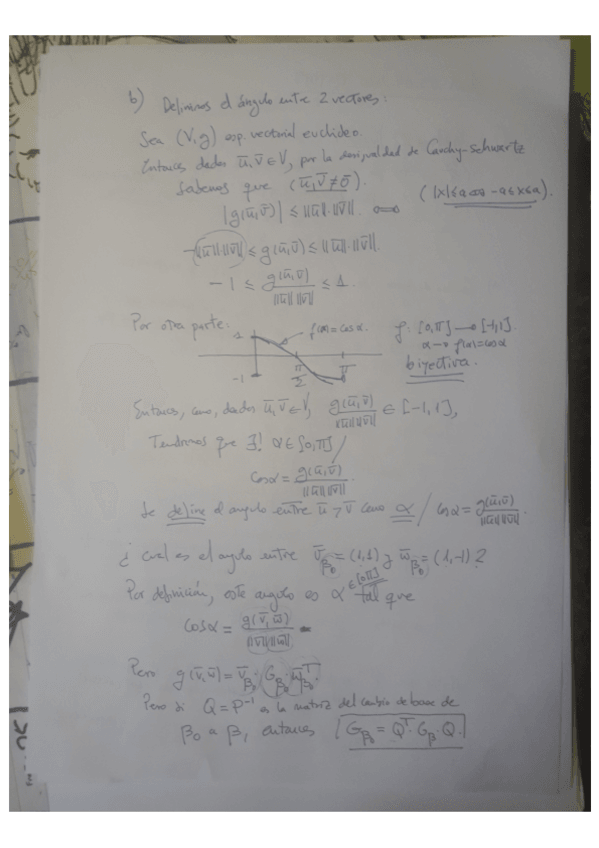 b) Definimos el ángulo entre 2 vectores:
Sea (V,g) esp. vectorial euclídeo.
Entonces dados ū, v̄ ∈ V, por la desigualdad de Cauchy-Schwartz
Sabemos que (ū, v̄ ≠ 0̄).
|g(ū,v̄)| ≤ ||ū||·||v̄|| ⟺ (|x| ≤ a ⟺ -a ≤ x ≤ a).
-||ū||·||v̄|| ≤ g(ū,v̄) ≤ ||ū||·||v̄||.
-1 ≤ g(ū,v̄) / ||ū|| ||v̄|| ≤ 1.
Por otra parte: 1 f(α) = cos α. f: [0,π] → [-1,1].
α → f(α) = cos α
-1 π/2 π biyectiva.
Entonces, como, dados ū, v̄ ∈ V, g(ū,v̄) / ||ū|| ||v̄|| ∈ [-1,1],
Tendremos que ∃! α ∈ [0,π] /
Cos α = g(ū,v̄) / ||ū|| ||v̄||
Se define el angulo entre ū y v̄ como α / cos α = g(ū,v̄) / ||ū|| ||v̄||.
¿Cual es el angulo entre v̄_β₀ = (1,1) y w̄_β₀ = (1,-1)?
Por definición, este angulo es α ∈ [0,π] tal que
Cos α = g(v̄,w̄) / ||v̄|| ||w̄||
Pero g(v̄,w̄) = v̄_β₀ · G_β₀ · w̄_β₀^T.
Pero si Q = P⁻¹ es la matriz del cambio de base de
β₀ a β, entonces G_β₀ = Q^T · G_β · Q.